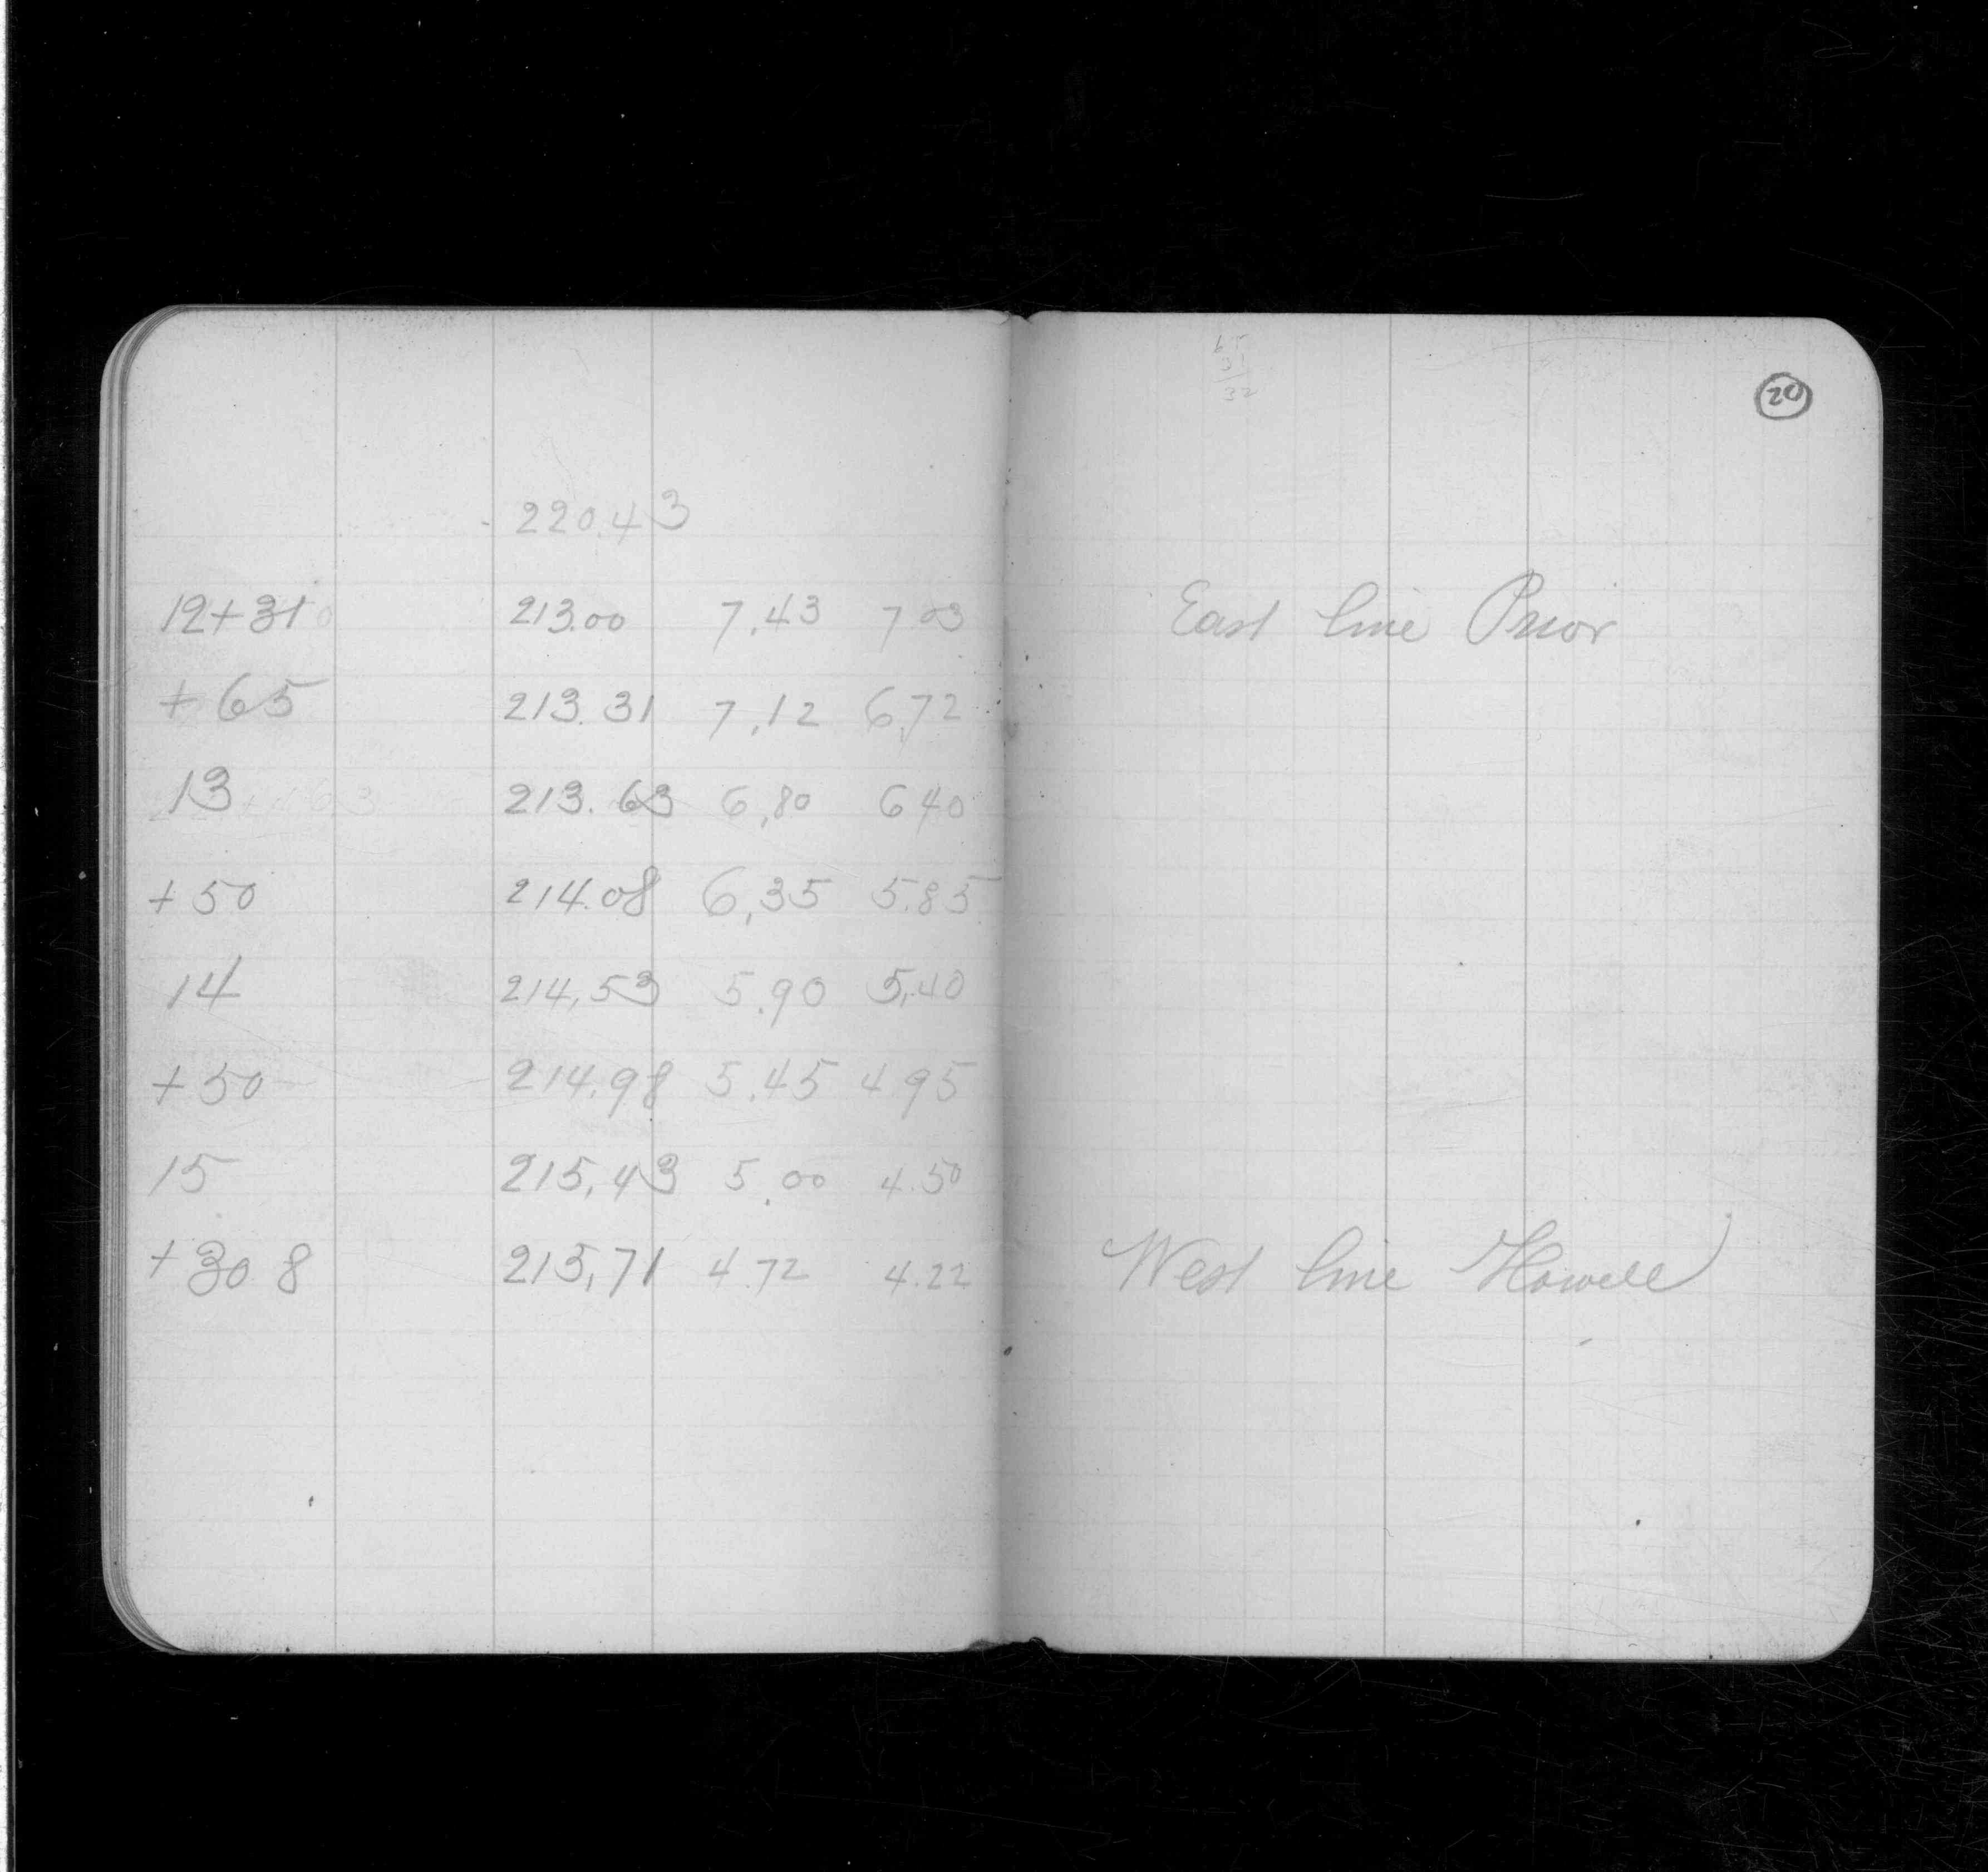 220.43
12+31 213.00 7.43 7 03
+65 213.31 7.12 6.72
13 213.63 6.80 6 40
+50 214.08 6.35 5.85
14 214.53 5.90 5.40
+50 214.98 5.45 4 95
15 215.43 5.00 4.50
+30 8 215.71 4 72 4.22
32
20
East line Prior
West line Howell